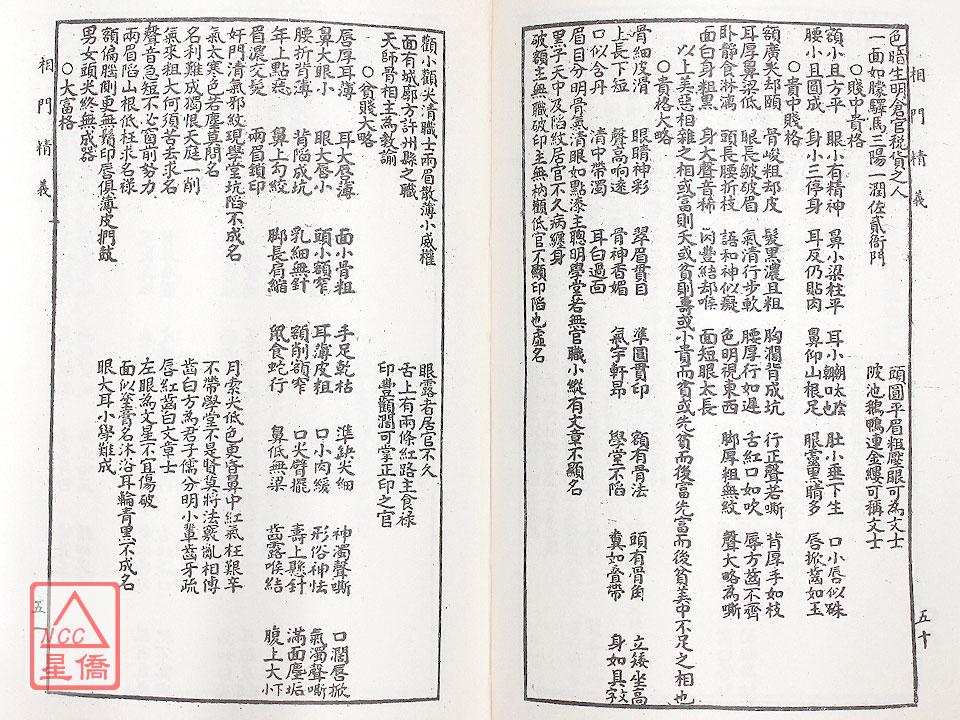 相門精義
五十
色昏生明倉官稅貨之人
頭圓平眉粗壓眼可為文士
一面如朦驛馬三陽一潤佐貳衙門
陂池鵝鴨連金縷可稱文士
○賤中貴格
額小且方平 眼小有精神 鼻小梁柱平 耳小朝太陰 肚小垂下生 口小唇似硃
腰小且圓成 身小三停身 耳反仍貼肉 鼻仰山根足 眼露黑睛多 唇掀齒如玉
○貴中賤格
額廣尖却頤 骨峻粗却皮 髮黑濃且粗 胸濶背成坑 行正聲若嘶 背厚手如枝
耳厚鼻梁低 眼長皺破眉 氣清行步軟 腰厚行如遲 舌紅口如吹 唇方齒不齊
卧靜食淋漓 頭長腰折枝 語和神似癡 色明視東西 脚厚粗無紋 聲大略為嘶
面白身粗黑 身大聲音稀 肉豐結却喉 面短眼太長
以上美惡相雜之相或富則夭或貧則壽或小貴而貧或先貧而後富先富而後貧美中不足之相也
○貴格大略
骨細皮滑 眼睛神彩 翠眉貫目 準圓貫印 額有骨法 頭有骨角 立矮坐高
上長下短 聲高响遠 骨神香媚 氣宇軒昂 學堂不陷 糞如叠帶 身如具字
口似含丹 清中帶濁 耳白過面
眉目分明骨氣清眼如點漆主聰明學堂若無官職小縱有文章不顯名
黑子天中及陷紋居官不久病纏身
破額主無職破印主無枘顴低官不顯印陷也虛名
相門精義
五
顴小顴尖清職士兩眉散薄小威權
眼露者居官不久
面有城廓方許州縣之職
舌上有兩條紅路主食祿
天師骨相主為教諭
印豐顴濶可掌正印之官
○貧賤大略
唇厚耳薄 耳大唇薄 面小骨粗 手足乾枯 準缺尖細 神濁聲嘶 口濶唇掀
鼻大眼小 眼大唇小 頭小額窄 耳薄皮粗 口小肉緩 形俗神怯 氣濁聲嘶
腰折背薄 背陷成坑 乳細無針 額削額窄 口尖臂擺 壽上懸針 滿面塵垢
年上點痣 鼻上勾紋 脚長肩縮 鼠食蛇行 鼻低無梁 齒露喉結 腹上大小
眉濃交髮 兩眉鎖印
奸門清氣邪紋現學堂坑陷不成名
月索尖低色更昏鼻中紅氣枉艱辛
氣大寒色若塵莫問名
不帶學堂不是賢莫將法竅亂相傳
名利難成獨恨天庭一削
齒白方為君子儒分明小輩齒牙疏
氣來粗大何須苦去求名
唇紅齒白文章士
聲音急短不必窗前努力
左眼為文星不宜傷破
兩眉陷山根低枉求名祿
面似塗膏名沐浴耳輪青黑不成名
額偏腦側更無鬚印唇俱薄皮捫鼓
眼大耳小學難成
男女頭尖終無成器
○大富格
NCC
星僑